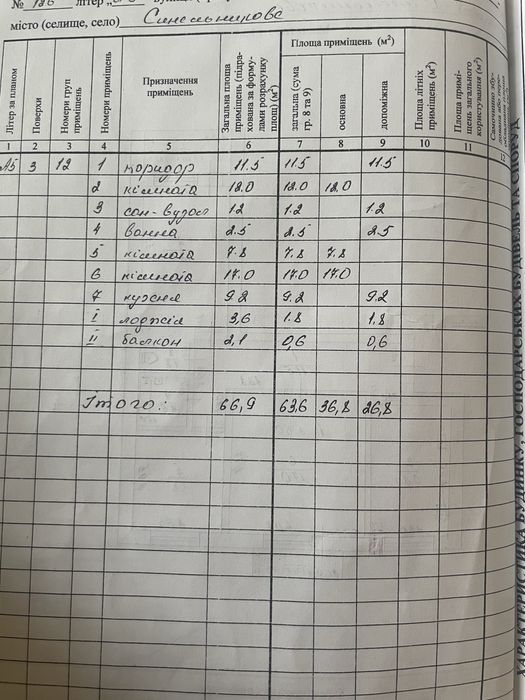 № 126 літер „
місто (селище, село) Синельникове
Літер за планом
Поверхи
Номери груп приміщень
Номери приміщень
Призначення приміщень
Загальна площа приміщень (підрахована за формулами розрахунку площ) (м²)
Площа приміщень (м²)
загальна (сума гр. 8 та 9)
основна
допоміжна
Площа літніх приміщень (м²)
Площа приміщень загального користування (м²)
1 2 3 4 5 6 7 8 9 10 11 12
А5 3 12 1 коридор 11.5 11.5 11.5
2 кімната 12.0 12.0 12.0
3 сан-вузол 1.2 1.2 1.2
4 ванна 2.5 2.5 2.5
5 кімната 7.8 7.8 7.8
6 кімната 17.0 17.0 17.0
7 кухня 9.2 9.2 9.2
I лоджія 3,6 1.8 1,8
II балкон 2,1 0,6 0,6
Ітого: 66,9 63,6 36,8 26,8
ХАРАКТЕРИСТИКА БУДИНКУ, ГОСПОДАРСЬКИХ БУДІВЕЛЬ ТА СПОРУД